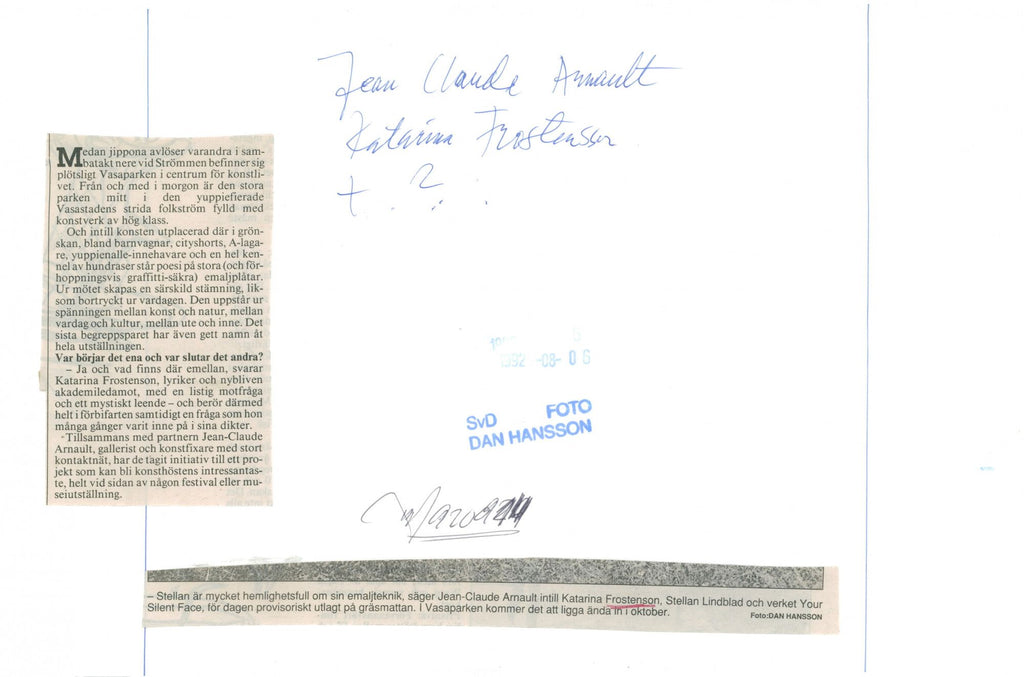 Jean Claude Arnault
Katarina Frostenson
+ ?
Medan jippona avlöser varandra i sam-
batakt nere vid Strömmen befinner sig
plötsligt Vasaparken i centrum för konstli-
vet. Från och med i morgon är den stora
parken mitt i den yuppiefierade
Vasastadens strida folkström fylld med
konstverk av hög klass.
Och intill konsten utplacerad där i grön-
skan, bland barnvagnar, cityshorts, A-laga-
re, yuppienalle-innehavare och en hel ken-
nel av hundraser står poesi på stora (och för-
hoppningsvis graffitti-säkra) emaljplåtar.
Ur mötet skapas en särskild stämning, lik-
som bortryckt ur vardagen. Den uppstår ur
spänningen mellan konst och natur, mellan
vardag och kultur, mellan ute och inne. Det
sista begreppsparet har även gett namn åt
hela utställningen.
Var börjar det ena och var slutar det andra?
– Ja och vad finns där emellan, svarar
Katarina Frostenson, lyriker och nybliven
akademiledamot, med en listig motfråga
och ett mystiskt leende – och berör därmed
helt i förbifarten samtidigt en fråga som hon
många gånger varit inne på i sina dikter.
Tillsammans med partnern Jean-Claude
Arnault, gallerist och konstfixare med stort
kontaktnät, har de tagit initiativ till ett pro-
jekt som kan bli konsthöstens intressantas-
te, helt vid sidan av någon festival eller mu-
seiutställning.
1992 -08- 06
SvD FOTO
DAN HANSSON
– Stellan är mycket hemlighetsfull om sin emaljteknik, säger Jean-Claude Arnault intill Katarina Frostenson, Stellan Lindblad och verket Your
Silent Face, för dagen provisoriskt utlagt på gräsmattan. I Vasaparken kommer det att ligga ända in i oktober.
Foto:DAN HANSSON